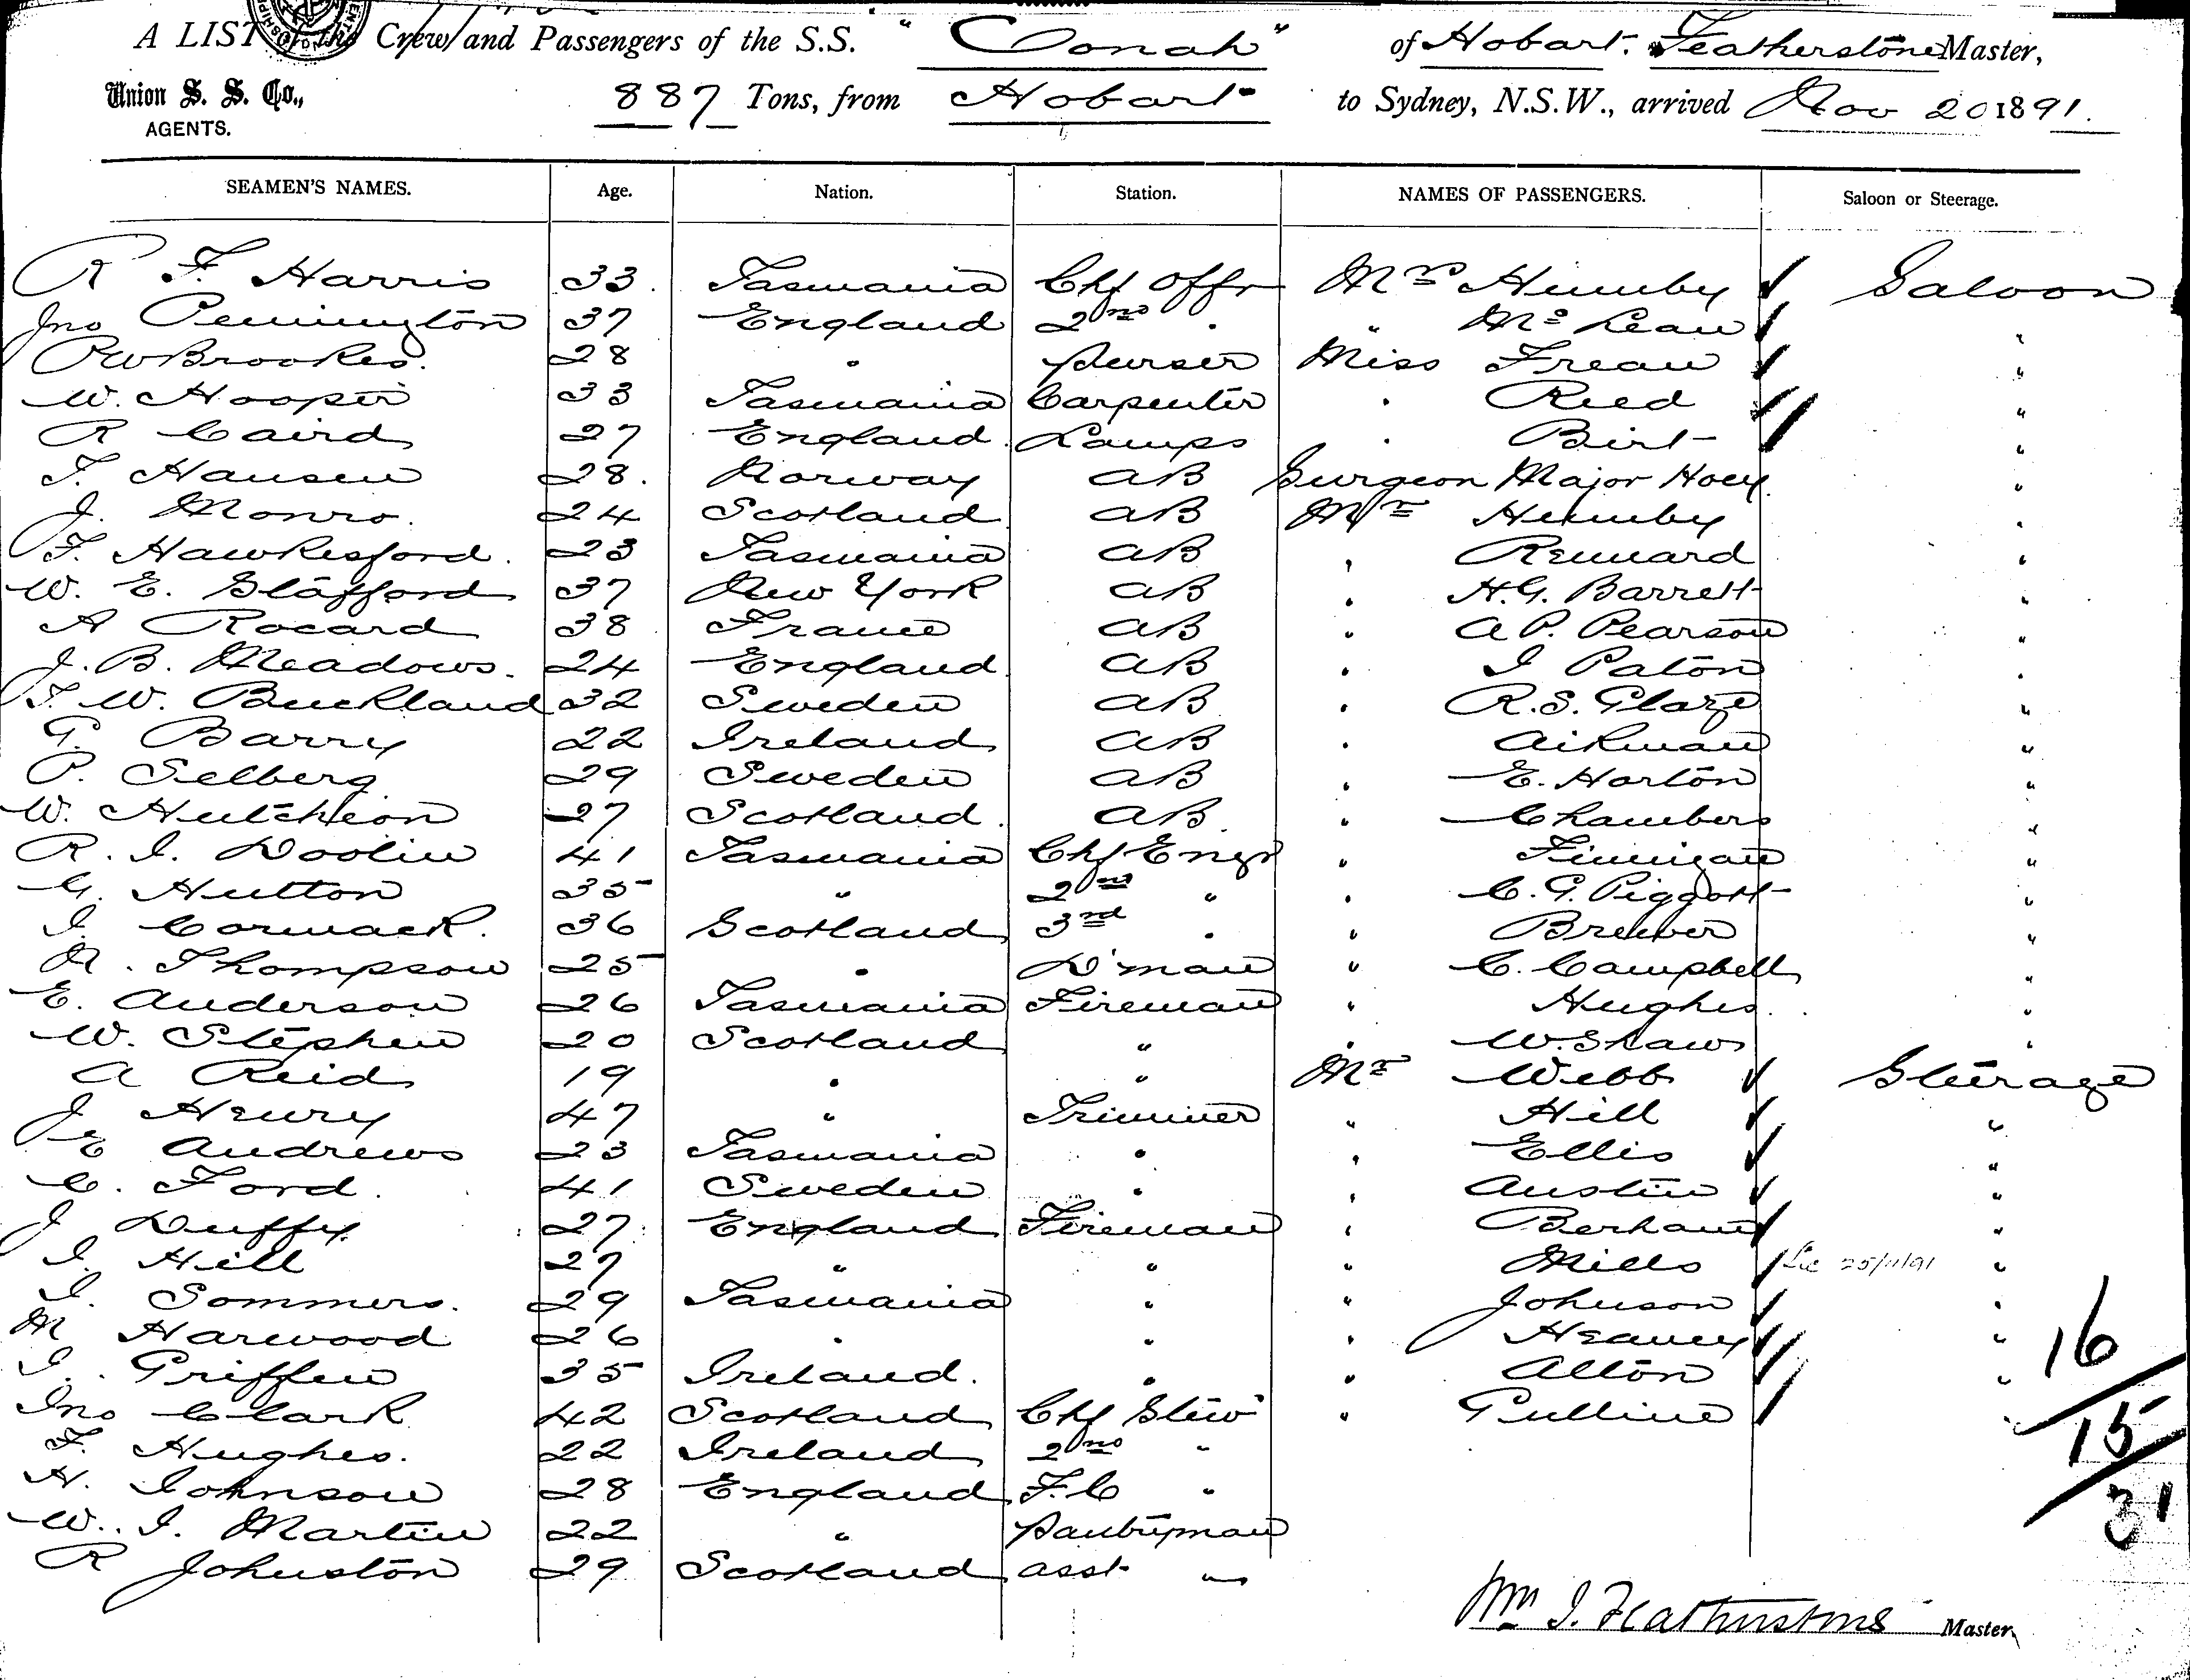 A LIST of the Crew and Passengers of the S.S. "Oonah" of Hobart. Featherstone Master,
Union S. S. Co., 887 Tons, from Hobart to Sydney, N.S.W., arrived Nov 20 1891.
AGENTS.
SEAMEN'S NAMES. Age. Nation. Station. NAMES OF PASSENGERS. Saloon or Steerage.
R F. Harris 33. Tasmania Chf Offr Mrs Humby Saloon
Jno Pennington 37 England 2nd " " McLean "
Brookes. 28 " Purser Miss Frean "
W. Hooper 33 Tasmania Carpenter " Reed "
R Caird 27 England Lamps " Birt "
T. Hansen 28. Norway AB Surgeon Major Hoey "
J. Monro. 24 Scotland AB Mr Humby "
F. Hawkesford. 23 Tasmania AB " Rennard "
W. E. Stafford 37 New York AB " H.G. Barrett "
A Rocard 38 France AB " A P. Pearson "
J. B. Meadows. 24 England AB " I Paton "
T. W. Buckland 32 Sweden AB " R.S. Glaze "
G. Barry 22 Ireland AB " Aikman "
P. Selberg 29 Sweden AB " E. Horton "
W. Hutcheon 27 Scotland. AB " Chambers "
R. I. Doolin 41 Tasmania Chf Engr " Finnigan "
G. Hutton 35 " 2nd " " C. G. Piggott "
I. Cormack. 36 Scotland 3rd " " Brewer "
Thompson 25 " D'man " C. Campbell "
E. Anderson 26 Tasmania Fireman " Hughes "
W. Stephen 20 Scotland " " W. Shaw "
A Reid 19 " " Mr Webb Steerage
J Henry 47 " Trimmer " Hill "
E Andrews 23 Tasmania " " Ellis "
C. Ford. 41 Sweden " " Austin "
J Duffy. 27 England Fireman " Berham "
I. Hill 27 " " " Mills 25/11/91 "
I. Sommers. 29 Tasmania " " Johnson "
M Harwood 26 " " " Heaney "
I. Griffen 35 Ireland. " " Alton "
Jno Clark 42 Scotland Chf Stew " Gulline "
F. Hughes. 22 Ireland 2nd "
H. Johnson 28 England F.C "
W. I. Martin 22 " Pantryman
R Johnston 29 Scotland asst "
16
15
31
Wm I. Featherstone Master.